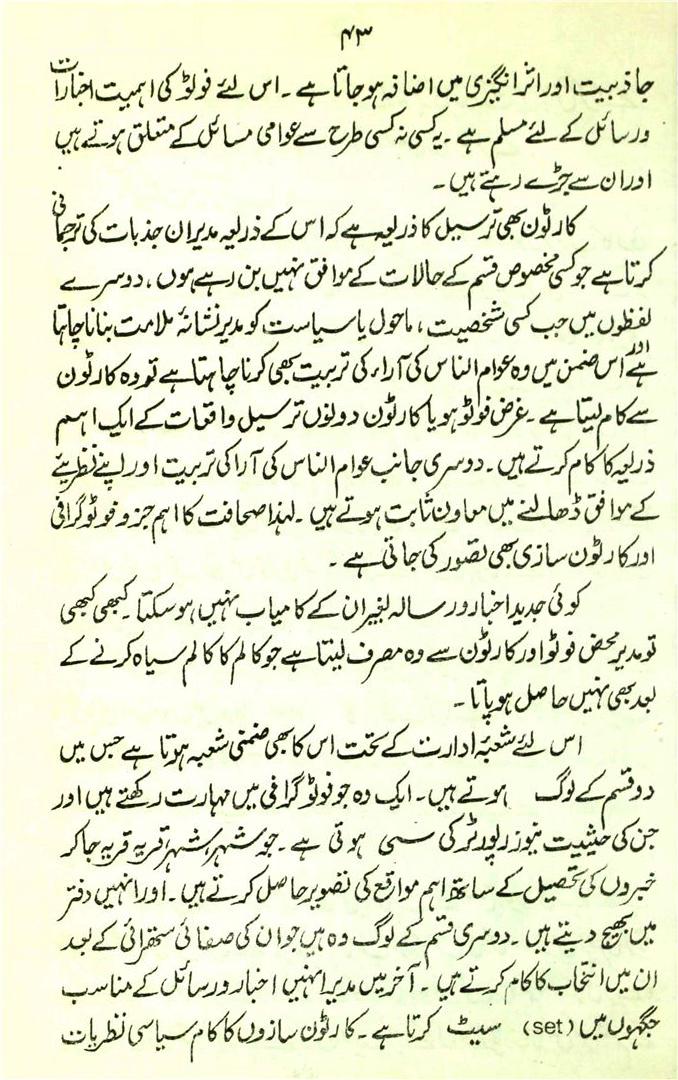 ۴۳
جاذبیت اور اثر انگیزی میں اضافہ ہو جاتا ہے ۔ اس لئے فوٹو کی اہمیت اخبارات
و رسائل کے لئے مسلم ہے ۔ یہ کسی نہ کسی طرح سے عوامی مسائل کے متعلق ہوتے ہیں
اور ان سے جڑے رہتے ہیں ۔
کارٹون بھی ترسیل کا ذریعہ ہے کہ اس کے ذریعہ مدیر ان جذبات کی ترجمانی
کرتا ہے جو کسی مخصوص قسم کے حالات کے موافق نہیں بن رہے ہوں ، دوسرے
لفظوں میں جب کسی شخصیت ، ماحول یا سیاست کو مدیر نشانۂ ملامت بنانا چاہتا
ہے اور اس ضمن میں وہ عوام الناس کی آراء کی تربیت بھی کرنا چاہتا ہے تو وہ کارٹون
سے کام لیتا ہے ۔ غرض فوٹو ہو یا کارٹون دونوں ترسیل واقعات کے ایک اہم
ذریعہ کا کام کرتے ہیں ۔ دوسری جانب عوام الناس کی آرا کی تربیت اور اپنے نظریئے
کے موافق ڈھالنے میں معاون ثابت ہوتے ہیں ۔ لہٰذا صحافت کا اہم جزو فوٹو گرافی
اور کارٹون سازی بھی تصور کی جاتی ہے ۔
کوئی جدید اخبار و رسالہ بغیر ان کے کامیاب نہیں ہو سکتا ۔ کبھی کبھی
تو مدیر محض فوٹو اور کارٹون سے وہ مصرف لیتا ہے جو کالم کا کالم سیاہ کرنے کے
بعد بھی نہیں حاصل ہو پاتا ۔
اس لئے شعبۂ ادارت کے تحت اس کا بھی ضمنی شعبہ ہوتا ہے جس میں
دو قسم کے لوگ ہوتے ہیں ۔ ایک وہ جو فوٹو گرافی میں مہارت رکھتے ہیں اور
جن کی حیثیت نیوز رپورٹر کی سی ہوتی ہے ۔ جو شہر شہر، قریہ قریہ جا کر
خبروں کی تحصیل کے ساتھ اہم مواقع کی تصویر حاصل کرتے ہیں ۔ اور انہیں دفتر
میں بھیج دیتے ہیں ۔ دوسری قسم کے لوگ وہ ہیں جو ان کی صفائی ستھرائی کے بعد
ان میں انتخاب کا کام کرتے ہیں ۔ آخر میں مدیر انہیں اخبار و رسائل کے مناسب
جگہوں میں (set) سیٹ کرتا ہے ۔ کارٹون سازوں کا کام سیاسی نظریات